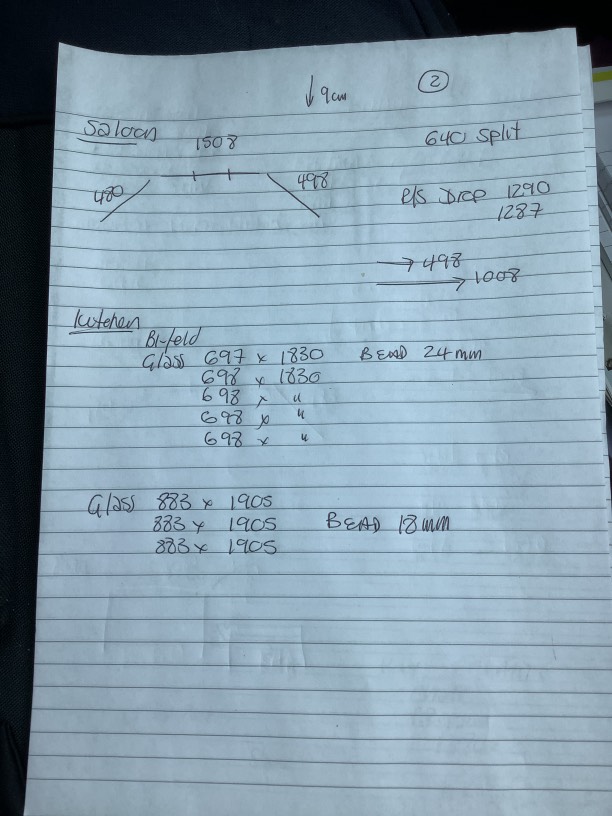 ↓ 9cm
2
Saloon
1508
640 Split
480
498
R/S Drop 1290
1287
→ 498
→ 1008
Kitchen
Bi-fold
Glass 697 x 1830 BEAD 24mm
698 x 1830
698 x "
698 x "
698 x "
Glass 883 x 1905
883 x 1905 BEAD 18mm
883 x 1905